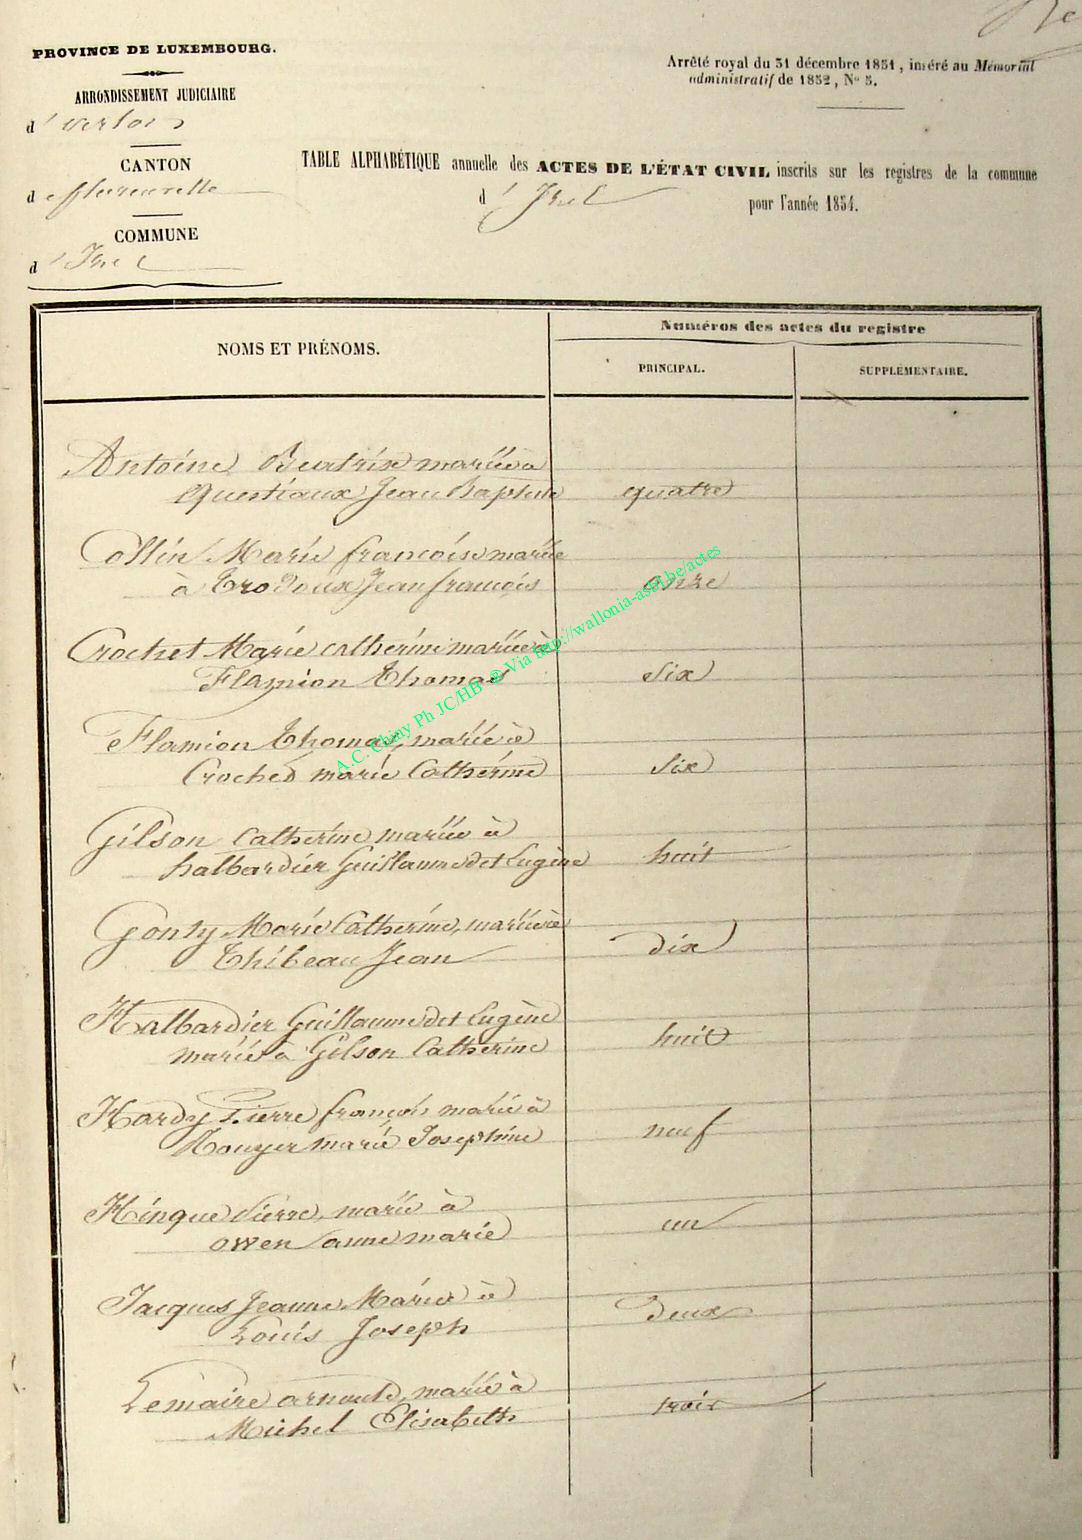 PROVINCE DE LUXEMBOURG.
ARRONDISSEMENT JUDICIAIRE
d'
CANTON
de florenville
COMMUNE
d'Izel
Arrêté royal du 31 décembre 1851, inséré au Mémorial
administratif de 1852, No 5.
TABLE ALPHABÉTIQUE annuelle des ACTES DE L'ÉTAT CIVIL inscrits sur les registres de la commune
d'Izel pour l'année 1854.
NOMS ET PRÉNOMS.
Numéros des actes du registre
PRINCIPAL.
SUPPLÉMENTAIRE.
Antoine Beatrix mariée à
Questiaux Jean Baptiste quatre
Collin Marie françoise mariée
à Trodoux Jean françois onze
Crochet Marie catherine mariée à
Flamion Thomas six
Flamion Thomas, marié à
Crochet marie Catherine six
Gilson Catherine, mariée à
halbardier Guillaume det Eugène huit
Gonry Marie Catherine, mariée à
Thibeau Jean dix
Halbardier Guillaume det Eugène
marié à Gilson Catherine huit
Hardy Pierre françois marié à
Rouyer marie Josephine neuf
Hinque Pierre, marié à
owen anne marie un
Jacques Jeanne Marie à
Louis Joseph deux
Lemaire arnould, marié à
Michel Elisabeth trois
A.C. Chiny Ph JC/HB @ Via http://wallonia-asbl.be/actes